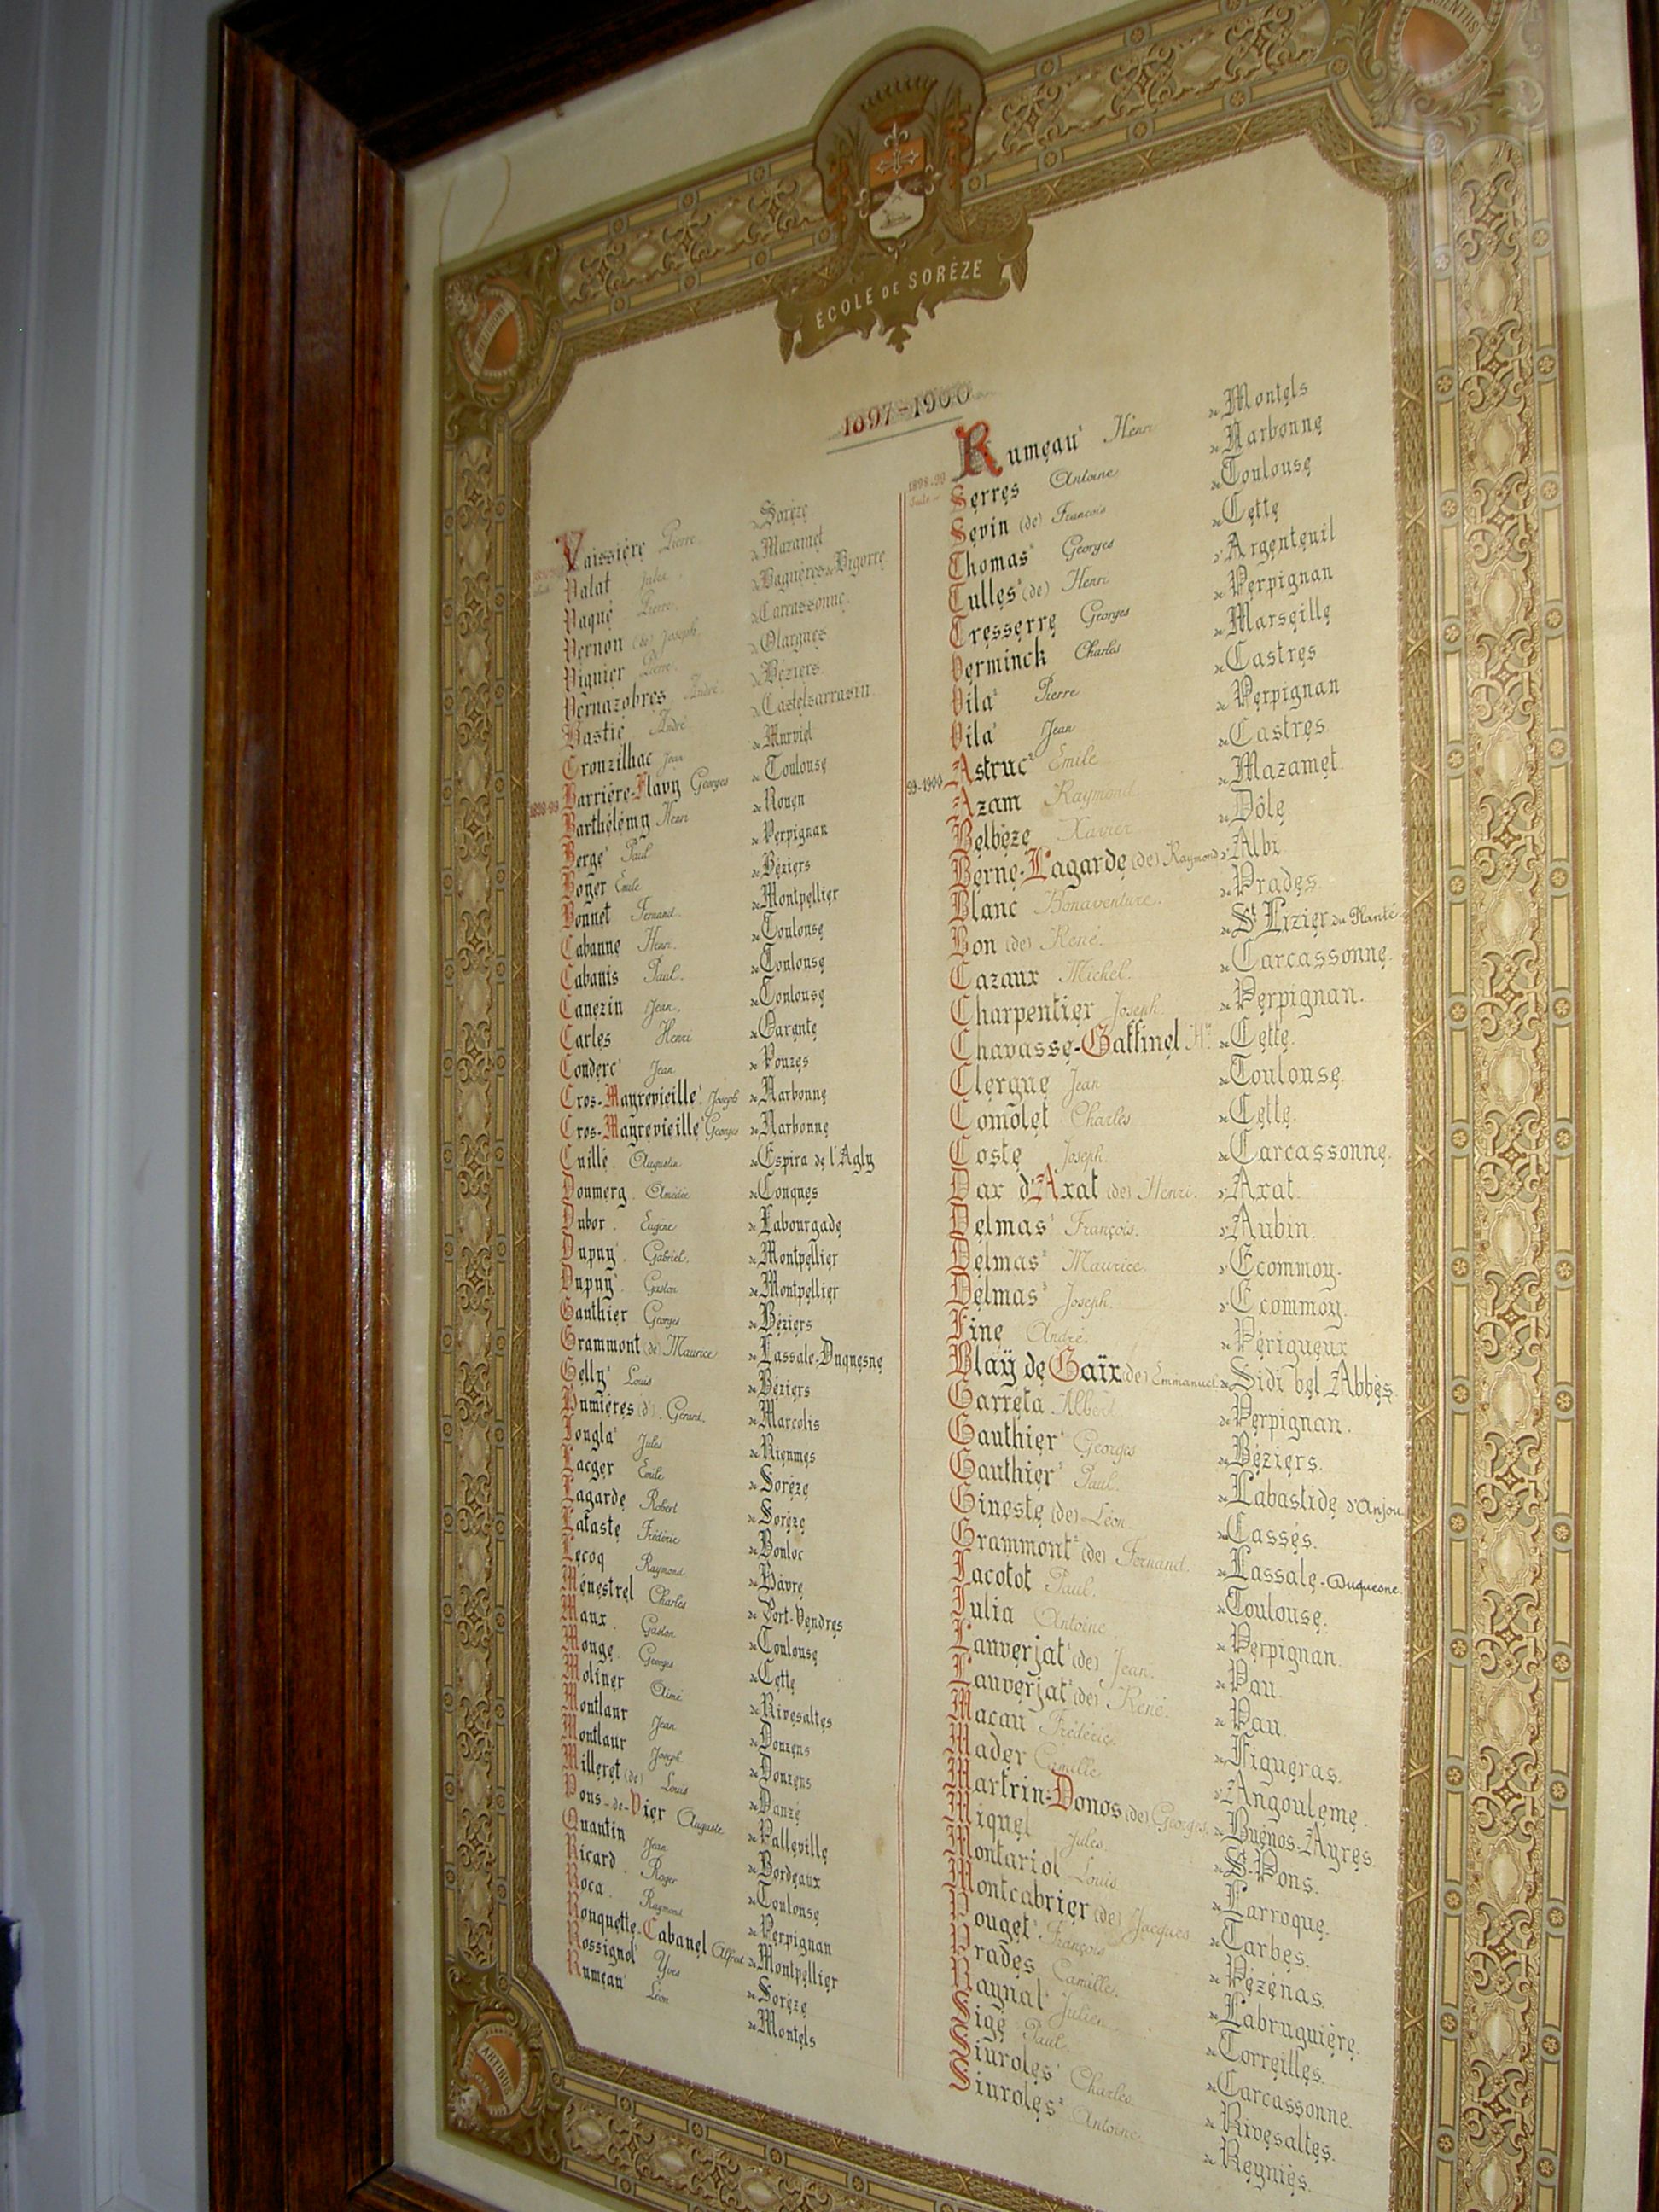 SCIENTIIS
RELIGIONI
ÉCOLE DE SORÈZE
1897-1900
Vaissière Pierre de Sorèze
Valat Jules de Mazamet
Vaqué Pierre de Bagnères de Bigorre
Vernon (de) Joseph de Carcassonne
Viguier Pierre d'Olargues
Vernazobres André de Béziers
Bastié André de Castelsarrasin
Crouzilhac Jean de Murviel
1898-99 Barrière-Flavy Georges de Toulouse
Barthélémy Henri de Rouen
Bergé Paul de Perpignan
Boyer Émile de Béziers
Bonnet Fernand de Montpellier
Cabanne Henri de Toulouse
Cabanis Paul de Toulouse
Canezin Jean de Toulouse
Carles Henri de
Couderc¹ Jean de Pouzes
Cros-Mayrevieille¹ Joseph de Narbonne
Cros-Mayrevieille² Georges de Narbonne
Cuillé Augustin de Espira de l'Agly
Doumerg Amédée de Conques
Dubor Eugène de Labourgade
Dupuy¹ Gabriel de Montpellier
Dupuy² Gaston de Montpellier
Gauthier Georges de Béziers
Grammont (de) Maurice de Lassale-Duquesne
Gelly¹ Louis de Béziers
Humières (d') Gérard de Marcolès
Jougla¹ Jules de Rieumes
Lacger Émile de Sorèze
Lagarde Robert de Sorèze
Lataste Frédéric de Bouloc
Lecoq Raymond de Hâvre
Ménestrel Charles de Port-Vendres
Maux Gaston de Toulouse
Monge Georges de Cette
Moliner Aimé de Rivesaltes
Montlaur Jean de Douzens
Montlaur Joseph de Douzens
Milleret (de) Louis de Danzé
Pons-de-Vier Auguste de Palleville
Quantin Jean de Bordeaux
Ricard Roger de Toulouse
Roca Raymond de Perpignan
Rouquette-Cabanel Alfred de Montpellier
Rossignol Yves de Sorèze
Rumeau Léon de Montels
1898-99 Rumeau² Henri de Montels
Suite Serres Antoine de Narbonne
Sevin (de) François de Toulouse
Thomas² Georges de Cette
Tulles² (de) Henri d'Argenteuil
Tresserre Georges de Perpignan
Verminck Charles de Marseille
Vila² Pierre de Castres
Vila¹ Jean de Perpignan
99-1900 Astruc² Émile de Castres
Azam Raymond de Mazamet
Belbèze Xavier de Dôle
Berne-Lagarde (de) Raymond d'Albi
Blanc Bonaventure de Prades
Bon (de) René de St Lizier du Planté
Cazaux Michel de Carcassonne
Charpentier Joseph de Perpignan
Chavasse-Gaffinel Hri de Cette
Clergue Jean de Toulouse
Comolet Charles de Cette
Coste Joseph de Carcassonne
Dax d'Axat (de) Henri d'Axat
Delmas¹ François d'Aubin
Delmas² Maurice d'Ecommoy
Delmas³ Joseph d'Ecommoy
Fine André de Périgueux
Blaÿ de Gaïx (de) Emmanuel de Sidi bel Abbès
Garréta Albert de Perpignan
Gauthier¹ Georges de Béziers
Gauthier² Paul de Labastide d'Anjou
Gineste (de) Léon de Cassés
Grammont² (de) Fernand de Lassale-Duquesne
Jacotot Paul de Toulouse
Julia Antoine de Perpignan
Lauverjat¹ (de) Jean de Pau
Lauverjat² (de) René de Pau
Macau Frédéric de Figueras
Mader Camille d'Angoulême
Martrin-Donos (de) Georges de Buénos-Ayres
Miquel Jules de St Pons
Montariol Louis de Larroque
Montcabrier (de) Jacques de Tarbes
Pouget¹ François de Pézénas
Prades Camille de Labruguière
Raynal¹ Julien de Torreilles
Sigé Paul de Carcassonne
Siuroles¹ Charles de Rivesaltes
Siuroles² Antoine de Reyniès
ARTIBUS